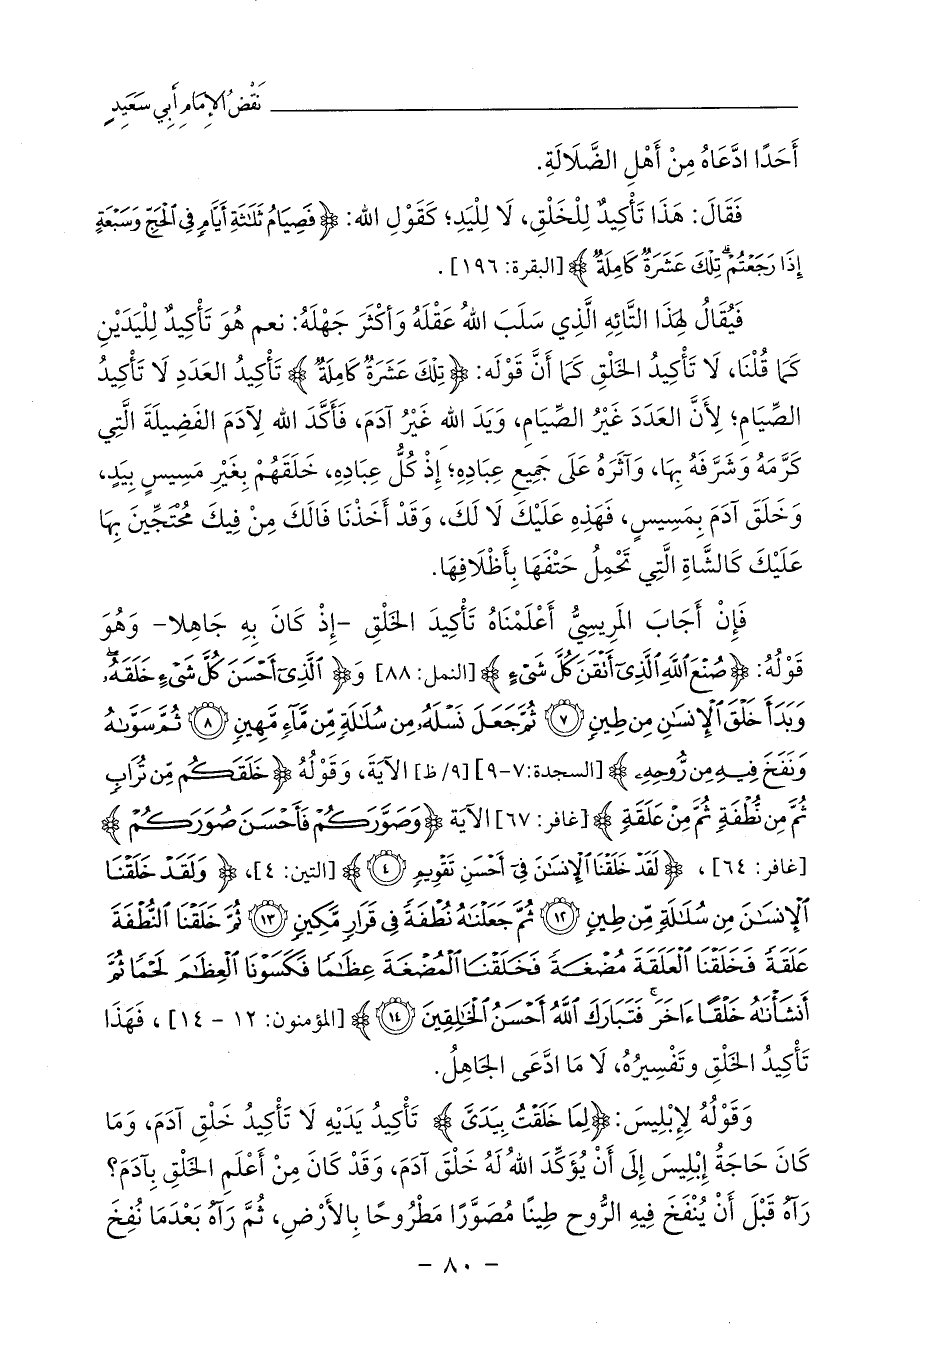 نَقْضُ الإِمَامِ أَبِي سَعِيدٍ
أَحَدًا ادَّعَاهُ مِنْ أَهْلِ الضَّلَالَةِ.
فَقَالَ: هَذَا تَأْكِيدٌ لِلْخَلْقِ، لَا لِلْيَدِ؛ كَقَوْلِ الله: ﴿فَصِيَامُ ثَلَـٰثَةِ أَيَّامٍ فِى ٱلْحَجِّ وَسَبْعَةٍ
إِذَا رَجَعْتُمْ ۗ تِلْكَ عَشَرَةٌ كَامِلَةٌ﴾ [البقرة: ١٩٦].
فَيُقَالُ لِهَذَا التَّائِهِ الَّذِي سَلَبَ اللهُ عَقْلَهُ وَأَكْثَرَ جَهْلَهُ: نعم هُوَ تَأْكِيدٌ لِلْيَدَيْنِ
كَمَا قُلْنَا، لَا تَأْكِيدُ الخَلْقِ كَمَا أَنَّ قَوْلَهُ: ﴿تِلْكَ عَشَرَةٌ كَامِلَةٌ﴾ تَأْكِيدُ العَدَدِ لَا تَأْكِيدُ
الصِّيَامِ؛ لِأَنَّ العَدَدَ غَيْرُ الصِّيَامِ، وَيَدَ الله غَيْرُ آدَمَ، فَأَكَّدَ الله لِآدَمَ الفَضِيلَةَ الَّتِي
كَرَّمَهُ وَشَرَّفَهُ بِهَا، وَآثَرَهُ عَلَى جَمِيعِ عِبَادِهِ؛ إِذْ كُلُّ عِبَادِهِ، خَلَقَهُمْ بِغَيْرِ مَسِيسٍ بِيَدٍ،
وَخَلَقَ آدَمَ بِمَسِيسٍ، فَهَذِهِ عَلَيْكَ لَا لَكَ، وَقَدْ أَخَذْنَا فَالَكَ مِنْ فِيكَ مُحْتَجِّينَ بِهَا
عَلَيْكَ كَالشَّاةِ الَّتِي تَحْمِلُ حَتْفَهَا بِأَظْلَافِهَا.
فَإِنْ أَجَابَ المَرِيسِيُّ أَعْلَمْنَاهُ تَأْكِيدَ الخَلْقِ -إِذْ كَانَ بِهِ جَاهِلا- وَهُوَ
قَوْلُهُ: ﴿صُنْعَ ٱللَّهِ ٱلَّذِىٓ أَتْقَنَ كُلَّ شَىْءٍ﴾ [النمل: ٨٨] وَ﴿ٱلَّذِىٓ أَحْسَنَ كُلَّ شَىْءٍ خَلَقَهُۥ ۖ
وَبَدَأَ خَلْقَ ٱلْإِنسَـٰنِ مِن طِينٍ ۝٧ ثُمَّ جَعَلَ نَسْلَهُۥ مِن سُلَـٰلَةٍ مِّن مَّآءٍ مَّهِينٍ ۝٨ ثُمَّ سَوَّىٰهُ
وَنَفَخَ فِيهِ مِن رُّوحِهِۦ﴾ [السجدة: ٧-٩] [٩/ظ] الآيَةَ، وَقَوْلُهُ ﴿خَلَقَكُم مِّن تُرَابٍ
ثُمَّ مِن نُّطْفَةٍ ثُمَّ مِنْ عَلَقَةٍ﴾ [غافر: ٦٧] الآيَةَ ﴿وَصَوَّرَكُمْ فَأَحْسَنَ صُوَرَكُمْ﴾
[غافر: ٦٤]، ﴿لَقَدْ خَلَقْنَا ٱلْإِنسَـٰنَ فِىٓ أَحْسَنِ تَقْوِيمٍ ۝٤﴾ [التين: ٤]، ﴿وَلَقَدْ خَلَقْنَا
ٱلْإِنسَـٰنَ مِن سُلَـٰلَةٍ مِّن طِينٍ ۝١٢ ثُمَّ جَعَلْنَـٰهُ نُطْفَةً فِى قَرَارٍ مَّكِينٍ ۝١٣ ثُمَّ خَلَقْنَا ٱلنُّطْفَةَ
عَلَقَةً فَخَلَقْنَا ٱلْعَلَقَةَ مُضْغَةً فَخَلَقْنَا ٱلْمُضْغَةَ عِظَـٰمًا فَكَسَوْنَا ٱلْعِظَـٰمَ لَحْمًا ثُمَّ
أَنشَأْنَـٰهُ خَلْقًا ءَاخَرَ ۚ فَتَبَارَكَ ٱللَّهُ أَحْسَنُ ٱلْخَـٰلِقِينَ ۝١٤﴾ [المؤمنون: ١٢ - ١٤]، فَهَذَا
تَأْكِيدُ الخَلْقِ وتَفْسِيرُهُ، لَا مَا ادَّعَى الجَاهِلُ.
وَقَوْلُهُ لِإِبْلِيسَ: ﴿لِمَا خَلَقْتُ بِيَدَىَّ﴾ تَأْكِيدُ يَدَيْهِ لَا تَأْكِيدُ خَلْقِ آدَمَ، وَمَا
كَانَ حَاجَةُ إِبْلِيسَ إِلَى أَنْ يُؤَكِّدَ اللهُ لَهُ خَلْقَ آدَمَ، وَقَدْ كَانَ مِنْ أَعْلَمِ الخَلْقِ بِآدَمَ؟
رَآهُ قَبْلَ أَنْ يُنْفَخَ فِيهِ الرُّوح طِينًا مُصَوَّرًا مَطْرُوحًا بِالأَرْضِ، ثُمَّ رَآهُ بَعْدَمَا نُفِخَ
- ٨٠ -